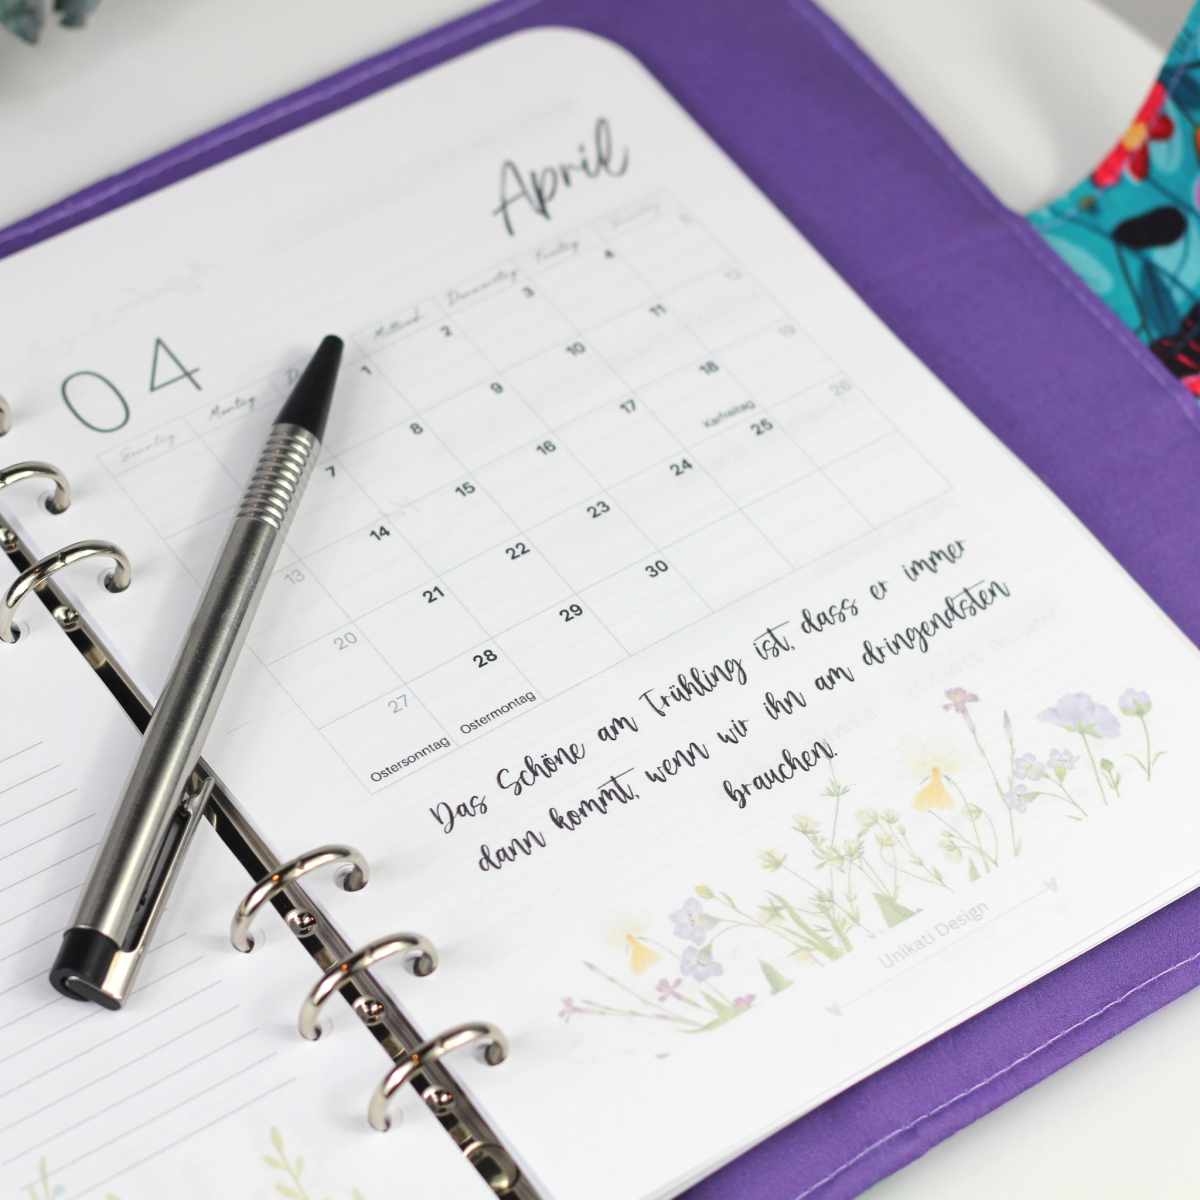 April
04
Sonntag Montag Mittwoch Donnerstag Freitag
1 2 3 4 5
7 8 9 10 11 12
13 14 15 16 17 18 19
Karfreitag
20 21 22 23 24 25 26
27 28 29 30
Ostersonntag Ostermontag
Das Schöne am Frühling ist, dass er immer
dann kommt, wenn wir ihn am dringendsten
brauchen.
Unikati Design